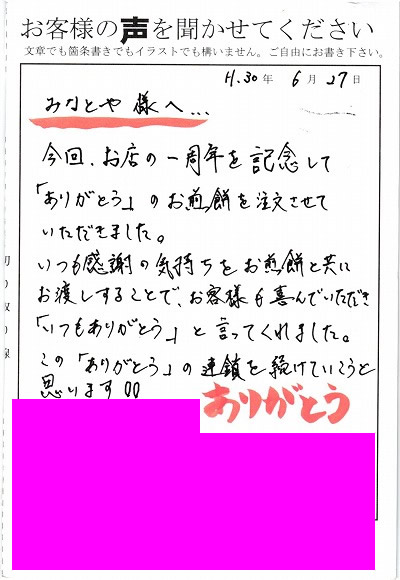 お客様の声を聞かせてください
文章でも箇条書きでもイラストでも構いません。ご自由にお書き下さい。
H.30年 6月27日
みなとや様へ...
今回、お店の一周年を記念して
「ありがとう」のお煎餅を注文させて
いただきました。
いつも感謝の気持ちをお煎餅と共に
お渡しすることで、お客様も喜んでいただき
「いつもありがとう」と言ってくれました。
この「ありがとう」の連鎖を続けていこうと
思います
ありがとう
切り取り線